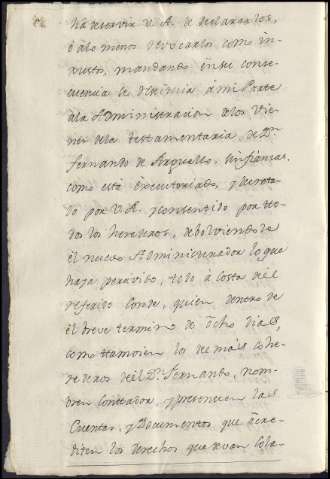 ha de servir V. A. de declararlos,
ó alo menos revocarlos como in-
justos, mandando en su conse-
cuencia se restituia á mi Parte
ala Administracion delos Vie-
nes dela testamentaria de Dn.
Fernando de Arguello, sin fianzas,
como está executoriado, y decreta-
do por V. A. y consentido por to-
dos los herederos, debolviendo
el nuevo Administrador lo que
haya percivido, todo á costa del
referido Conde, quien dentro de
el breve termino de ocho dias,
como tambien los demás cohe-
rederos del Dn. Fernando, nom-
bren Contador, y presenten las
Cuentas, y Documentos, que acre-
diten los derechos que